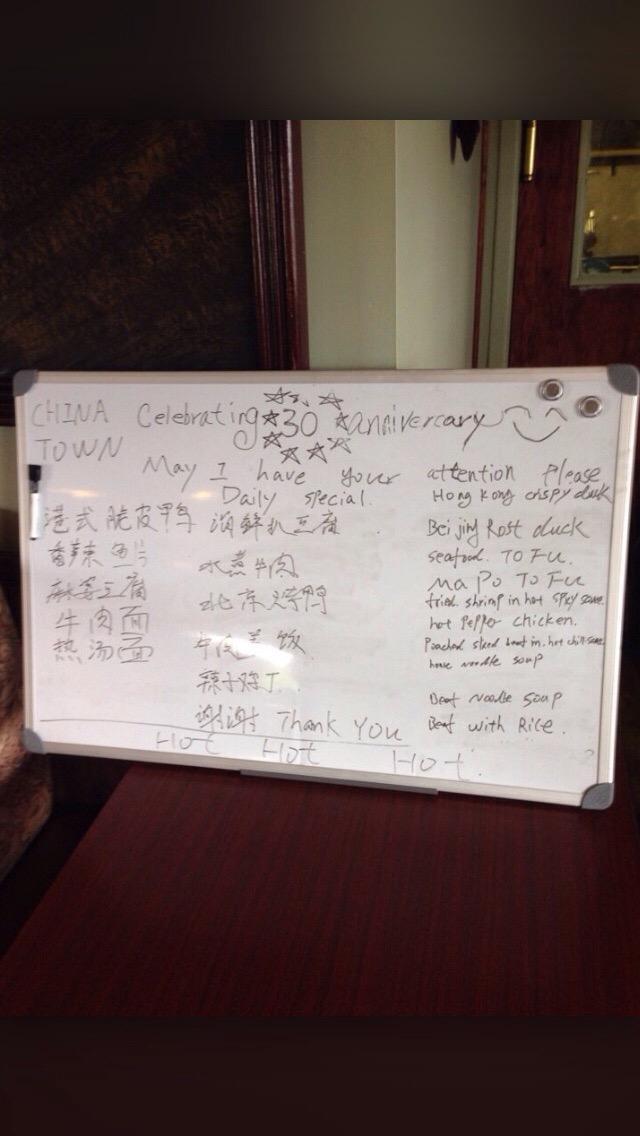 CHINA TOWN
Celebrating 30 annivercary
May I have your attention Please
Daily special.
港式脆皮鸭
香辣鱼片
麻婆豆腐
牛肉面
热汤面
海鲜扒豆腐
水煮牛肉
北京烤鸭
牛肉盖饭
辣子鸡丁
谢谢 Thank You
Hong Kong crispy duck
Beijing Rost duck
seafood. TO FU.
Ma Po TO FU
fried. shrimp in hot spicy sauce
hot pepper chicken.
Poached sliced beef in. hot chili sauce
house noodle soup
Beef noodle soup
Beef with Rice.
Hot Hot Hot.